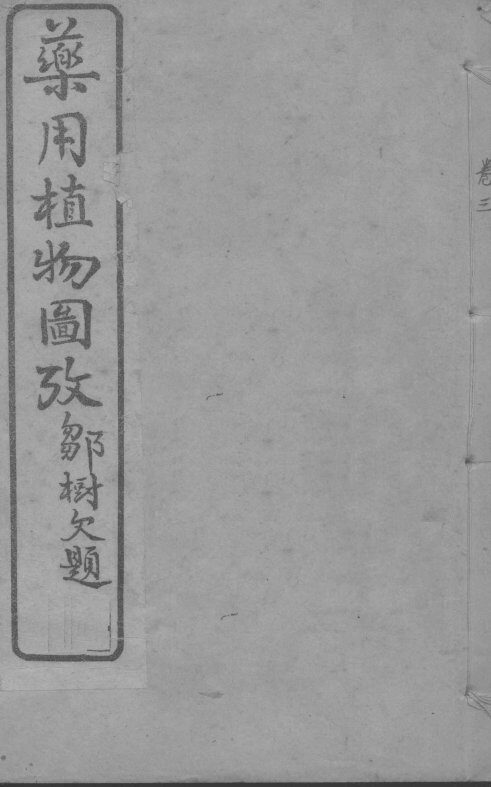 藥用植物圖攷
鄒樹文題
卷三